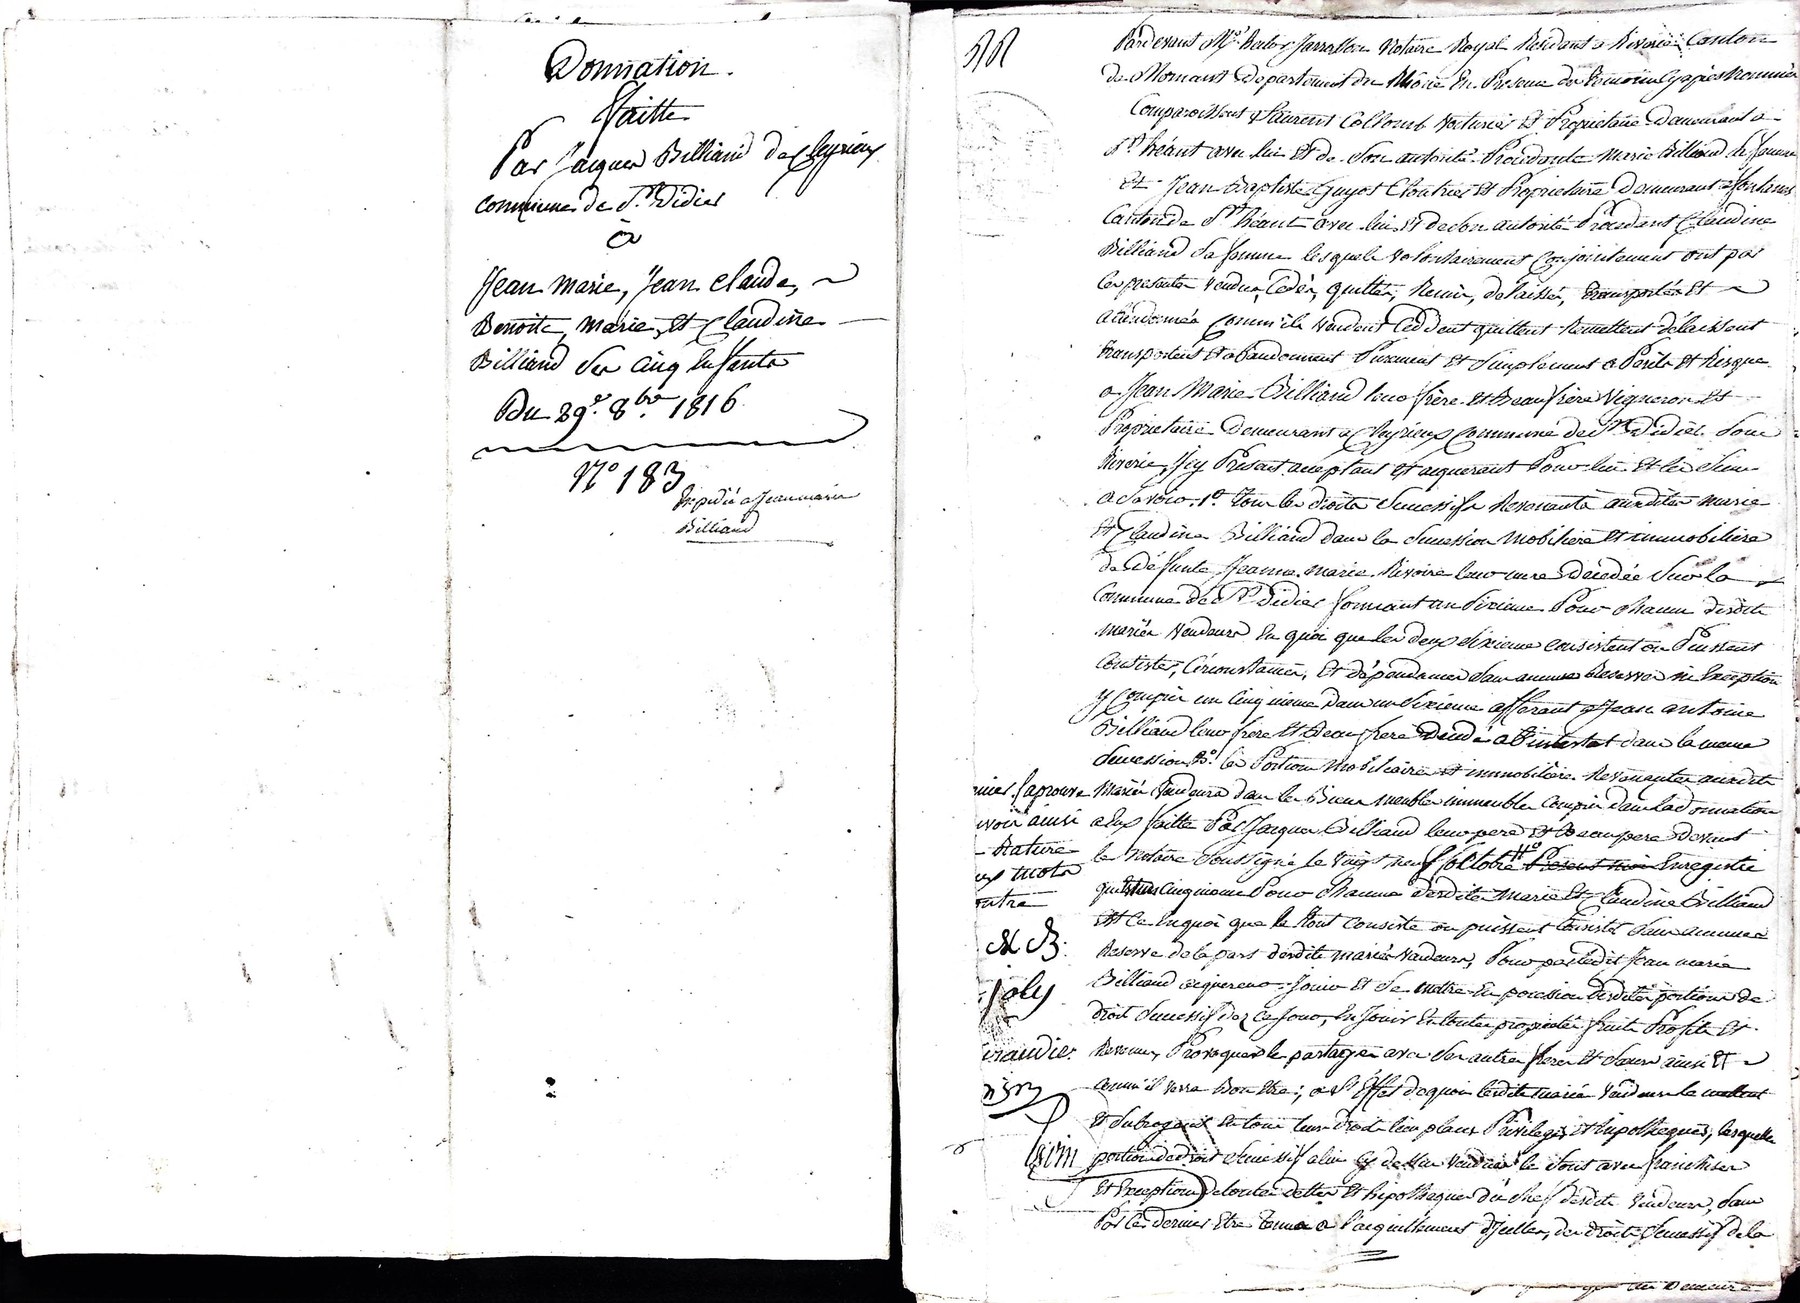 Donnation.
ffaitte
Par Jacques Billiand de Cleyrieux
Commune de St. Didier
à
Jean Marie, Jean Claude,
Benoite, Marie, Et Claudine
Billiand Ses Cinq Enfants
Du 29e. 8bre. 1816
N° 183
Expedié a Jean marie
Billiand
Pardevant Me. Notaire Royal Residant a Riverie Canton
de Mornant Departement du Rhône En Presence des temoins Cyapres nommés
Comparoissent Laurent Collomb voiturier Et Proprietaire Demeurant a
St. héant avec lui Et de Son autorité Procedante Marie Billiand Sa femme
Et Jean Baptiste Guyot Cloutrier Et Proprietaire Demeurant a fontanes
Canton de St. héant avec lui Et de Son autorité Procedant Claudine
Billiand Sa femme lesquels volontairement Conjointement ont par
les presentes vendus, Cedés, quittés, Remis, delaissés, transportés Et
abandonnés Comm'ils vendent Cedent quittent Remettent délaissent
transportent Et abandonnent Purement Et Simplement a Perils Et Risque
a Jean Marie Billiand leur frère Et Beau frère Vigneron Et
Proprietaire Demeurant a Cleyrieux Commune de St. Didier Sous
Riverie, Icy Present acceptant Et aquerant Pour lui Et les Siens
a Savoir. 1° tous les droits Successifs Revenants auxdites marie
Et Claudine Billiand dans la Succession Mobiliere Et immobiliere
de Defunte Jeanne marie Rivoire leur mere Decedée Sur la
Commune de St. Didier formant un Sixieme Pour chacun desdits
mariés vendeurs En quoi que les deux Sixieme consistent ou Puissent
Consister, Circonstances, Et dépendances Sans aucune Reserve ni Exception
y Compris un Cinquieme dans un Sixieme afferant a Jean antoine
Billiand leur frère Et Beau frere Decedé ab intestat dans la meme
Succession 2°. les Portions Mobiliaire Et immobilière Revenantes auxdits
Mariés Vendeurs dans les Biens meubles immeubles Compris dans la Donnation
a Eux faitte Par Jacques Billiand leur pere Et Beau pere Devant
le Notaire Soussigné le vingt neuf octobre Enregistré
qui Cinquieme Pour chacune desdites Marie Et Claudine Billiand
Et Ce En quoi que le tout Consiste ou puissent Consister Sans aucune
Reserve de la part desdits mariés vendeurs, Pour par ledit Jean marie
Billiand aquereur Jouir Et Se mettre En possession desdites portions de
droit Successif dez Ce Jour, En Jouir En toutes propriétés fruits Profits Et
Revenus, Provoquer le partage avec Ses autres freres Et Soeurs ainsi Et
Comm'il verra bon Etre; a l'Effet de quoi lesdits mariés Vendeurs le mettent
Et Subrogent En tous leurs droits lieu places Privileges Et hipotheques, lesquelles
portions de droit Successif a lui Cy dessus vendues le Sont avec franchises
Et Exceptions de toutes dettes Et hipotheques du chef desdits vendeurs, Sans
Par les derniers Etre tenus a l'acquittement d'Icelles, des droits Successif de la
aprouve
ainsi
Nature
mots
C B.
joly